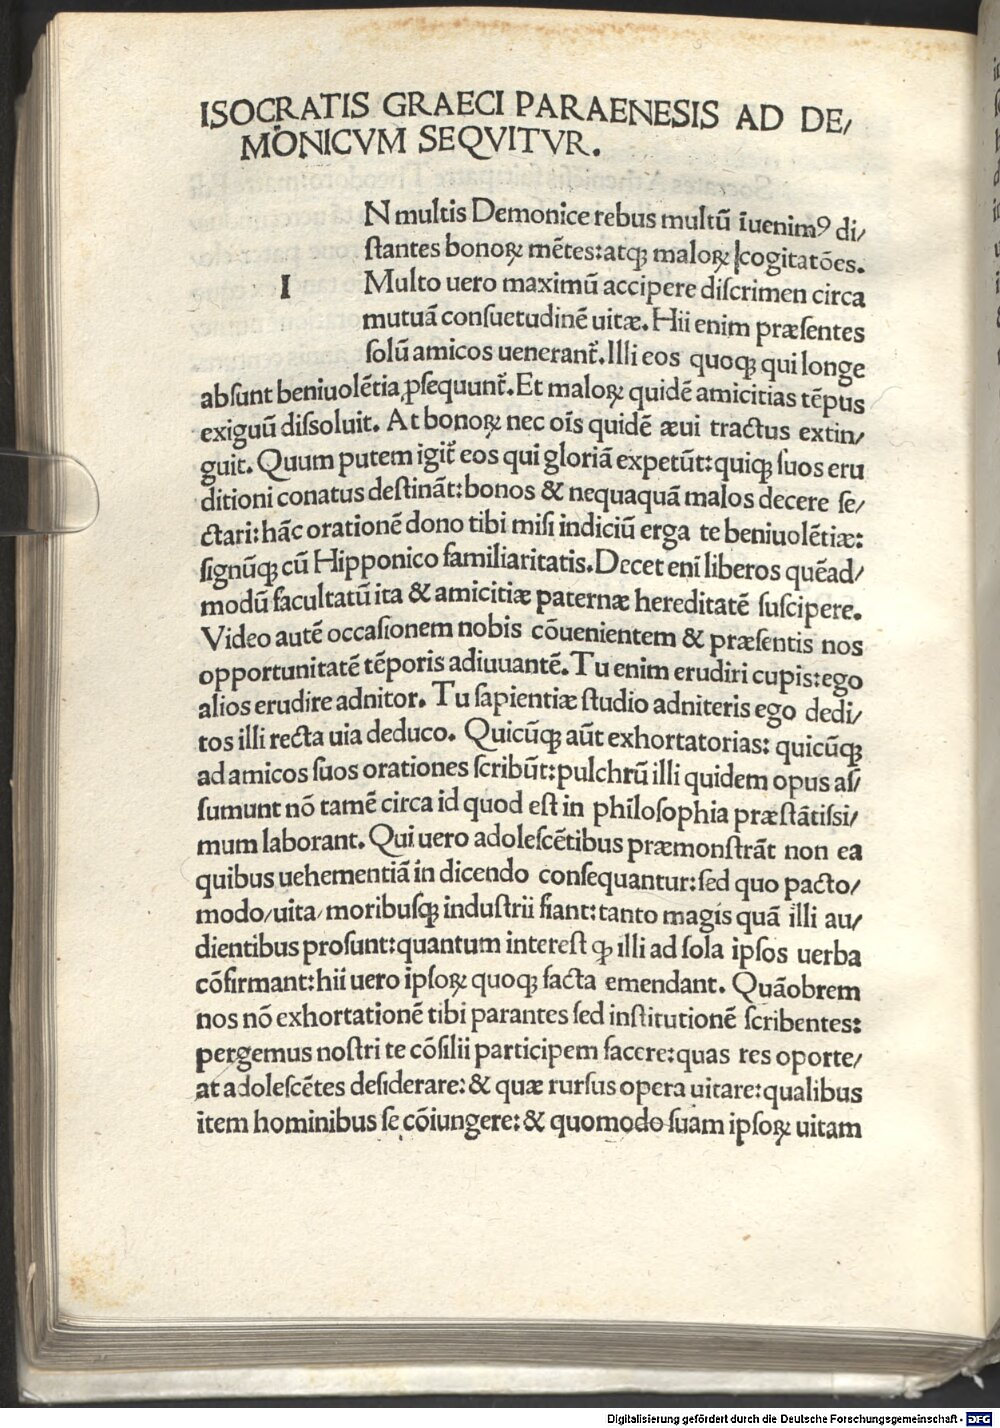 ISOCRATIS GRAECI PARAENESIS AD DE/
MONICVM SEQVITVR.
N multis Demonice rebus multū īuenimꝰ di/
ſtantes bonoꝝ mētes: atqꝫ maloꝝ cogitatōes.
I Multo uero maximū accipere diſcrimen circa
mutuā conſuetudinē uitæ. Hii enim præſentes
ſolū amicos ueneranť. Illi eos quoqꝫ qui longe
abſunt beniuolētia ꝓſequunť. Et maloꝝ quidē amicitias tēpus
exiguū diſſoluit. At bonoꝝ nec oīs quidē æui tractus extin/
guit. Quum putem igiť eos qui gloriā expetūt: quiqꝫ ſuos eru
ditioni conatus deſtināt: bonos & nequaquā malos decere ſe/
ctari: hāc orationē dono tibi miſi indiciū erga te beniuolētiæ:
ſignūqꝫ cū Hipponico familiaritatis. Decet enī liberos quēad/
modū facultatū ita & amicitiæ paternæ hereditatē ſuſcipere.
Video autē occaſionem nobis cōuenientem & præſentis nos
opportunitatē tēporis adiuuantē. Tu enim erudiri cupis: ego
alios erudire adnitor. Tu ſapientiæ ſtudio adniteris ego dedi/
tos illi recta uia deduco. Quicūqꝫ aūt exhortatorias: quicūqꝫ
ad amicos ſuos orationes ſcribūt: pulchrū illi quidem opus aſ/
ſumunt nō tamē circa id quod eſt in philoſophia præſtātiſſi/
mum laborant. Qui uero adoleſcētibus præmonſtrāt non ea
quibus uehementiā in dicendo conſequantur: ſed quo pacto/
modo/uita/moribuſqꝫ induſtrii fiant: tanto magis quā illi au/
dientibus proſunt: quantum intereſt ꝙ illi ad ſola ipſos uerba
cōfirmant: hii uero ipſoꝝ quoqꝫ facta emendant. Quāobrem
nos nō exhortationē tibi parantes ſed inſtitutionē ſcribentes:
pergemus noſtri te cōſilii participem facere: quas res oporte/
at adoleſcētes deſiderare: & quæ rurſus opera uitare: qualibus
item hominibus ſe cōiungere: & quomodo ſuam ipſoꝝ uitam
Digitalisierung gefördert durch die Deutsche Forschungsgemeinschaft - DFG